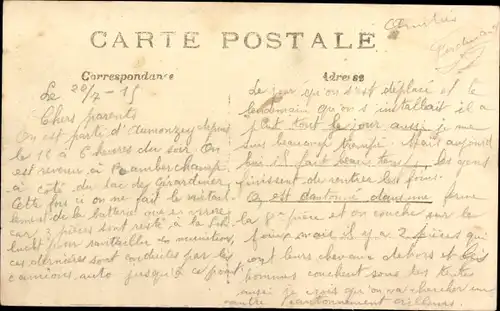 Amitiés
Ferdinand
CARTE POSTALE
Correspondance
Adresse
Le 22/7-15
Chers parents
On est parti d'Aumonzey depuis
le 16 à 6 heures du soir On
est revenu à Ramberchamp
à côté du lac de Gérardmer
Cette fois ci on ne fait le ravitail-
lement de la batterie que en vivres
car 3 pièces sont resté à la
pour ravitailler en munitions,
ces dernières sont conduites par les
camions auto jusqu'à ce point
Le jour qu'on s'est déplacé et le
lendemain qu'on s'installait il a
plut tout le jour aussi je me
suis beaucoup trempé. Mais aujourd
hui il fait beau temps, les gens
finissent de rentrer les foins.
On est cantonné dans une ferme
la 8e pièce et on couche sur le
foin mais il y a 2 pièces qui
ont leurs chevaux dehors et les
hommes couchent sous des tentes
aussi je crois qu'on va chercher un
autre cantonnement ailleurs.